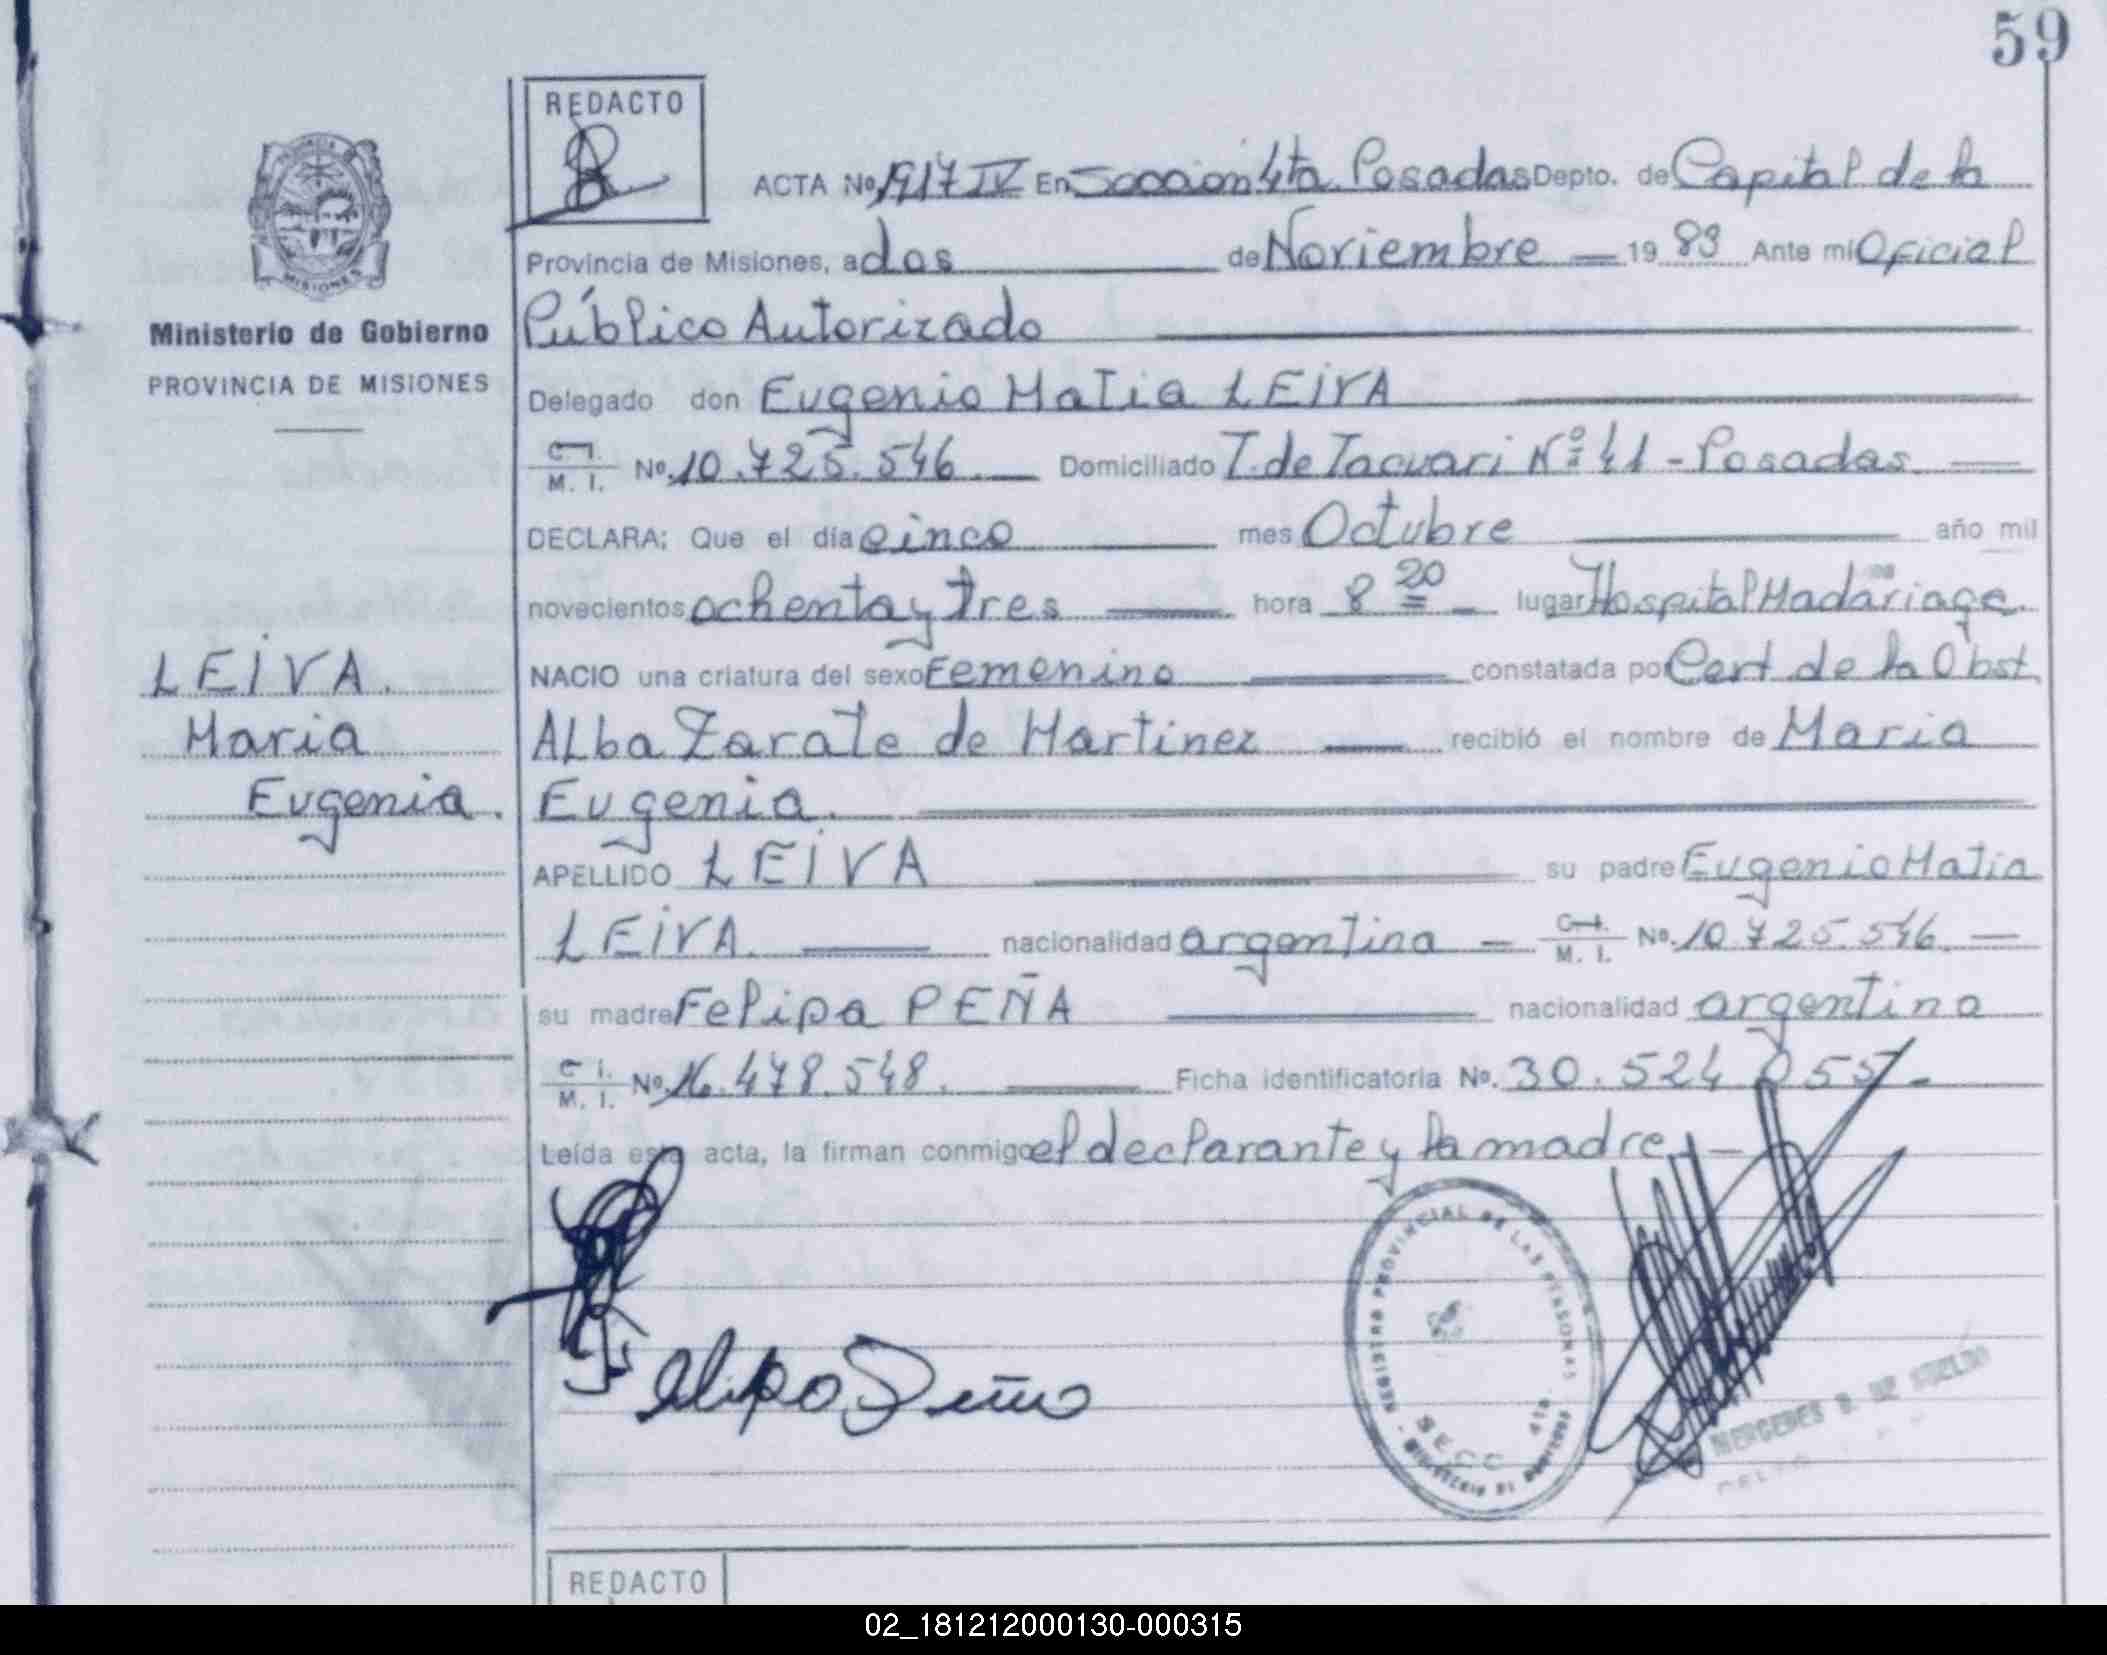 59
REDACTO
ACTA Nº 1917 IV En Sección 4ta. Posadas Depto. de Capital de la
Provincia de Misiones, a dos de Noviembre 19 83 Ante mi Oficial
Público Autorizado
Ministerio de Gobierno
PROVINCIA DE MISIONES
Delegado don Eugenio Matia LEIVA
C. I.
M. I. Nº. 10.725.546. Domiciliado T. de Tacuari Nº 41 - Posadas.
DECLARA: Que el día cinco mes Octubre año mil
novecientos ochenta y tres hora 8 20 lugar Hospital Madariaga.
NACIO una criatura del sexo Femenino constatada por Cert de la Obst.
Alba Zarate de Martinez recibió el nombre de Maria
Eugenia.
LEIVA.
Maria
Eugenia.
APELLIDO LEIVA su padre Eugenio Matia
LEIVA. nacionalidad argentina C. I. M. I. Nº. 10.725.546.
su madre Felipa PEÑA nacionalidad argentina
C. I.
M. I. Nº. 16.478.548. Ficha identificatoria Nº. 30.524.055.
Leída esta acta, la firman conmigo el declarante y la madre.
Felipa Peña
REGISTRO PROVINCIAL DE LAS PERSONAS
SECC 4ta.
MERCEDES
REDACTO
02_181212000130-000315